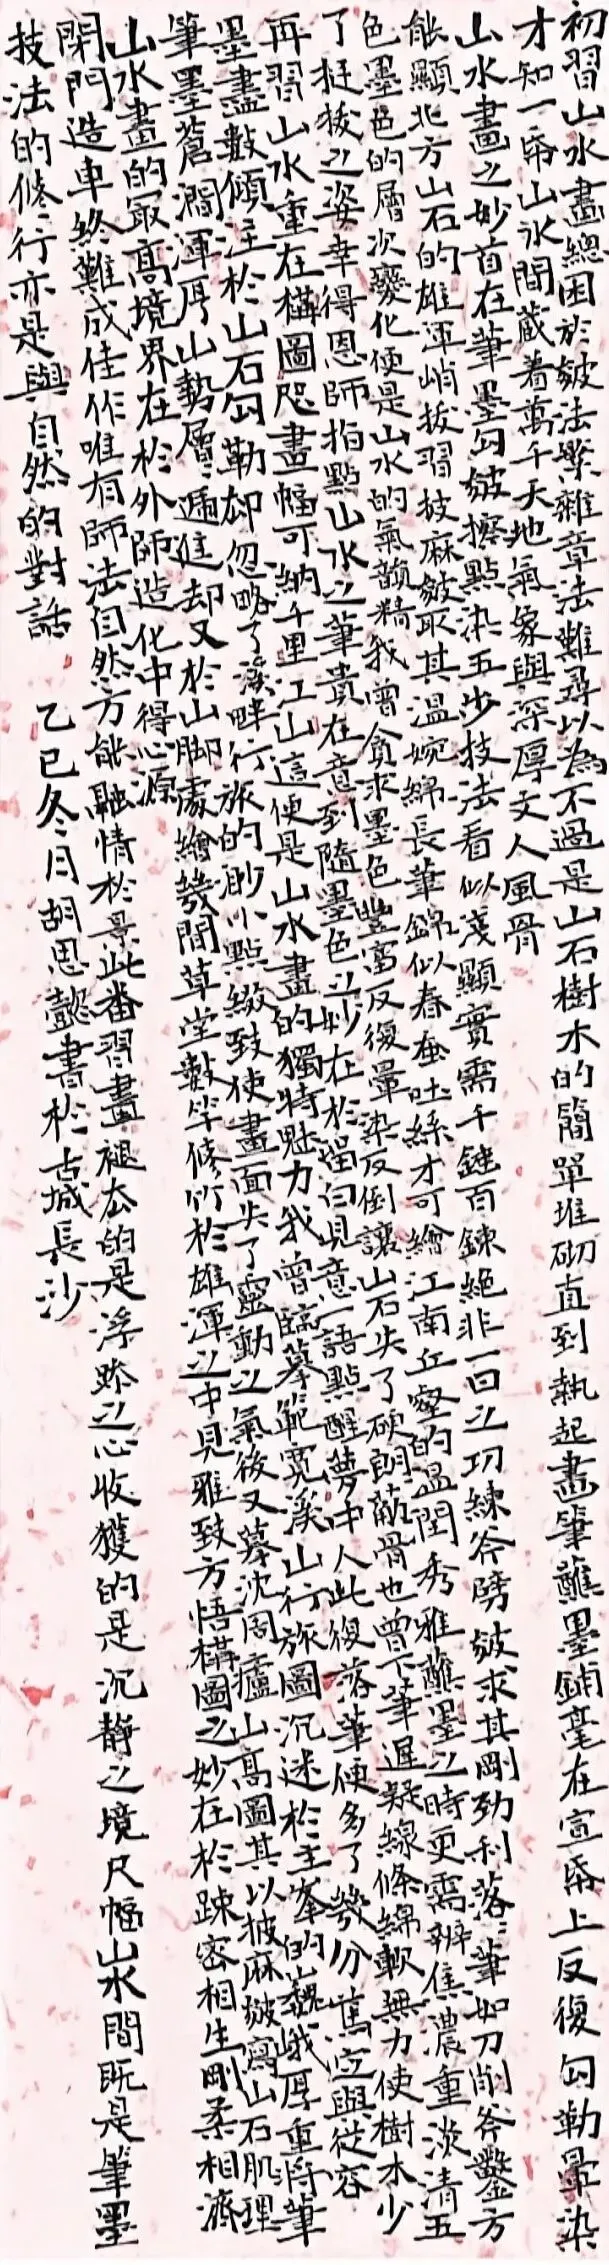 初習山水畫總困於皴法緊雜章法難尋以為不過是山石樹木的簡單堆砌直到執起畫筆蘸墨鋪毫在宣帋上反復勾勒暈染
才知一帋山水間蔵着萬千天地氣象與深厚文人風骨
山水畫之妙首在筆墨勾皴擦點染五步技法看似淺顯實需千鎚百鍊絕非一日之功練斧劈皴求其剛勁利落筆如刀削斧鑿方
能顯北方山石的雄渾峭拔習披麻皴取其溫婉綿長筆鋒似春蚕吐絲才可繪江南丘壑的温閏秀雅蘸墨之時更需辨焦濃重淡清五
色墨色的層次變化便是山水的氣韻精我曾貪求墨色豐富反復暈染反倒讓山石失了硬朗葥骨也曾下筆遲疑線條綿軟無力使樹木少
了挺拔之姿幸得恩師指點山水之筆貴在意到隨墨色之妙在於留白見意一語點醒夢中人此復落筆便多了幾分篤定與從容
再習山水重在構圖咫畫幅可納千里江山這便是山水畫的獨特魅力我曾臨摹範寬溪山行旅圖沉迷於主峯的巍峨厚重將筆
墨盡數傾注於山石勾勒却忽略了溪畔行旅的眇小點綴致使畫面失了靈動之氣後又摹沈周廬山高圖其以披麻皴寫山石肌理
筆墨蒼潤渾厚山勢層遞進却又於山脚處繪幾間草堂數竿修竹於雄渾之中見雅致方悟構圖之妙在於踈密相生剛柔相濟
山水畫的冣高境界在於外師造化中得心源
閉門造車終難成佳作唯有師法自然方能融情於景此番習畫褪去的是浮躁之心收獲的是沉靜之境尺幅山水間既是筆墨
技法的修行亦是與自然的對話 乙巳冬月胡思懿書於古城長沙